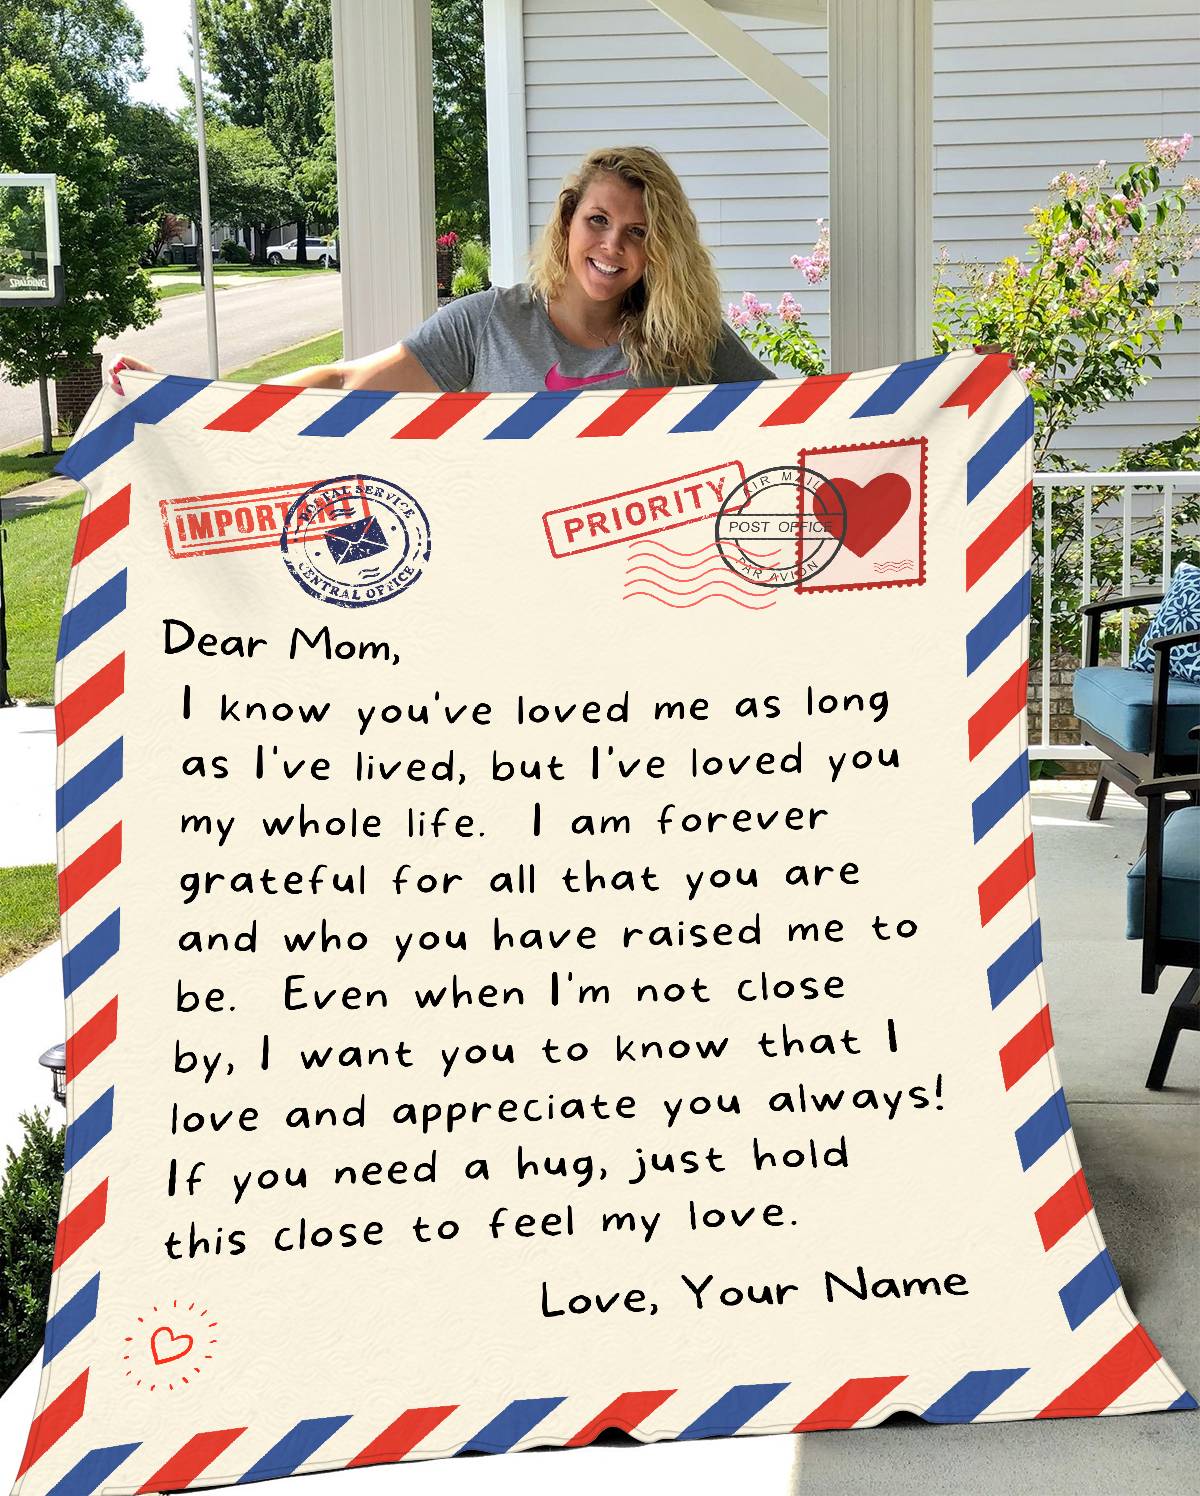 SPALDING
IMPORTANT
POSTAL SERVICE
CENTRAL OFFICE
PRIORITY
AIR MAIL
POST OFFICE
PAR AVION
Dear Mom,
I know you've loved me as long
as I've lived, but I've loved you
my whole life. I am forever
grateful for all that you are
and who you have raised me to
be. Even when I'm not close
by, I want you to know that I
love and appreciate you always!
If you need a hug, just hold
this close to feel my love.
Love, Your Name